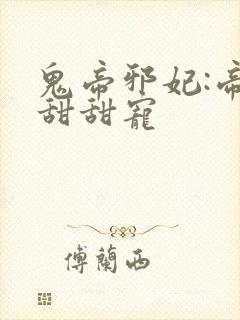 鬼帝邪妃:帝
甜甜寵
傅蘭西